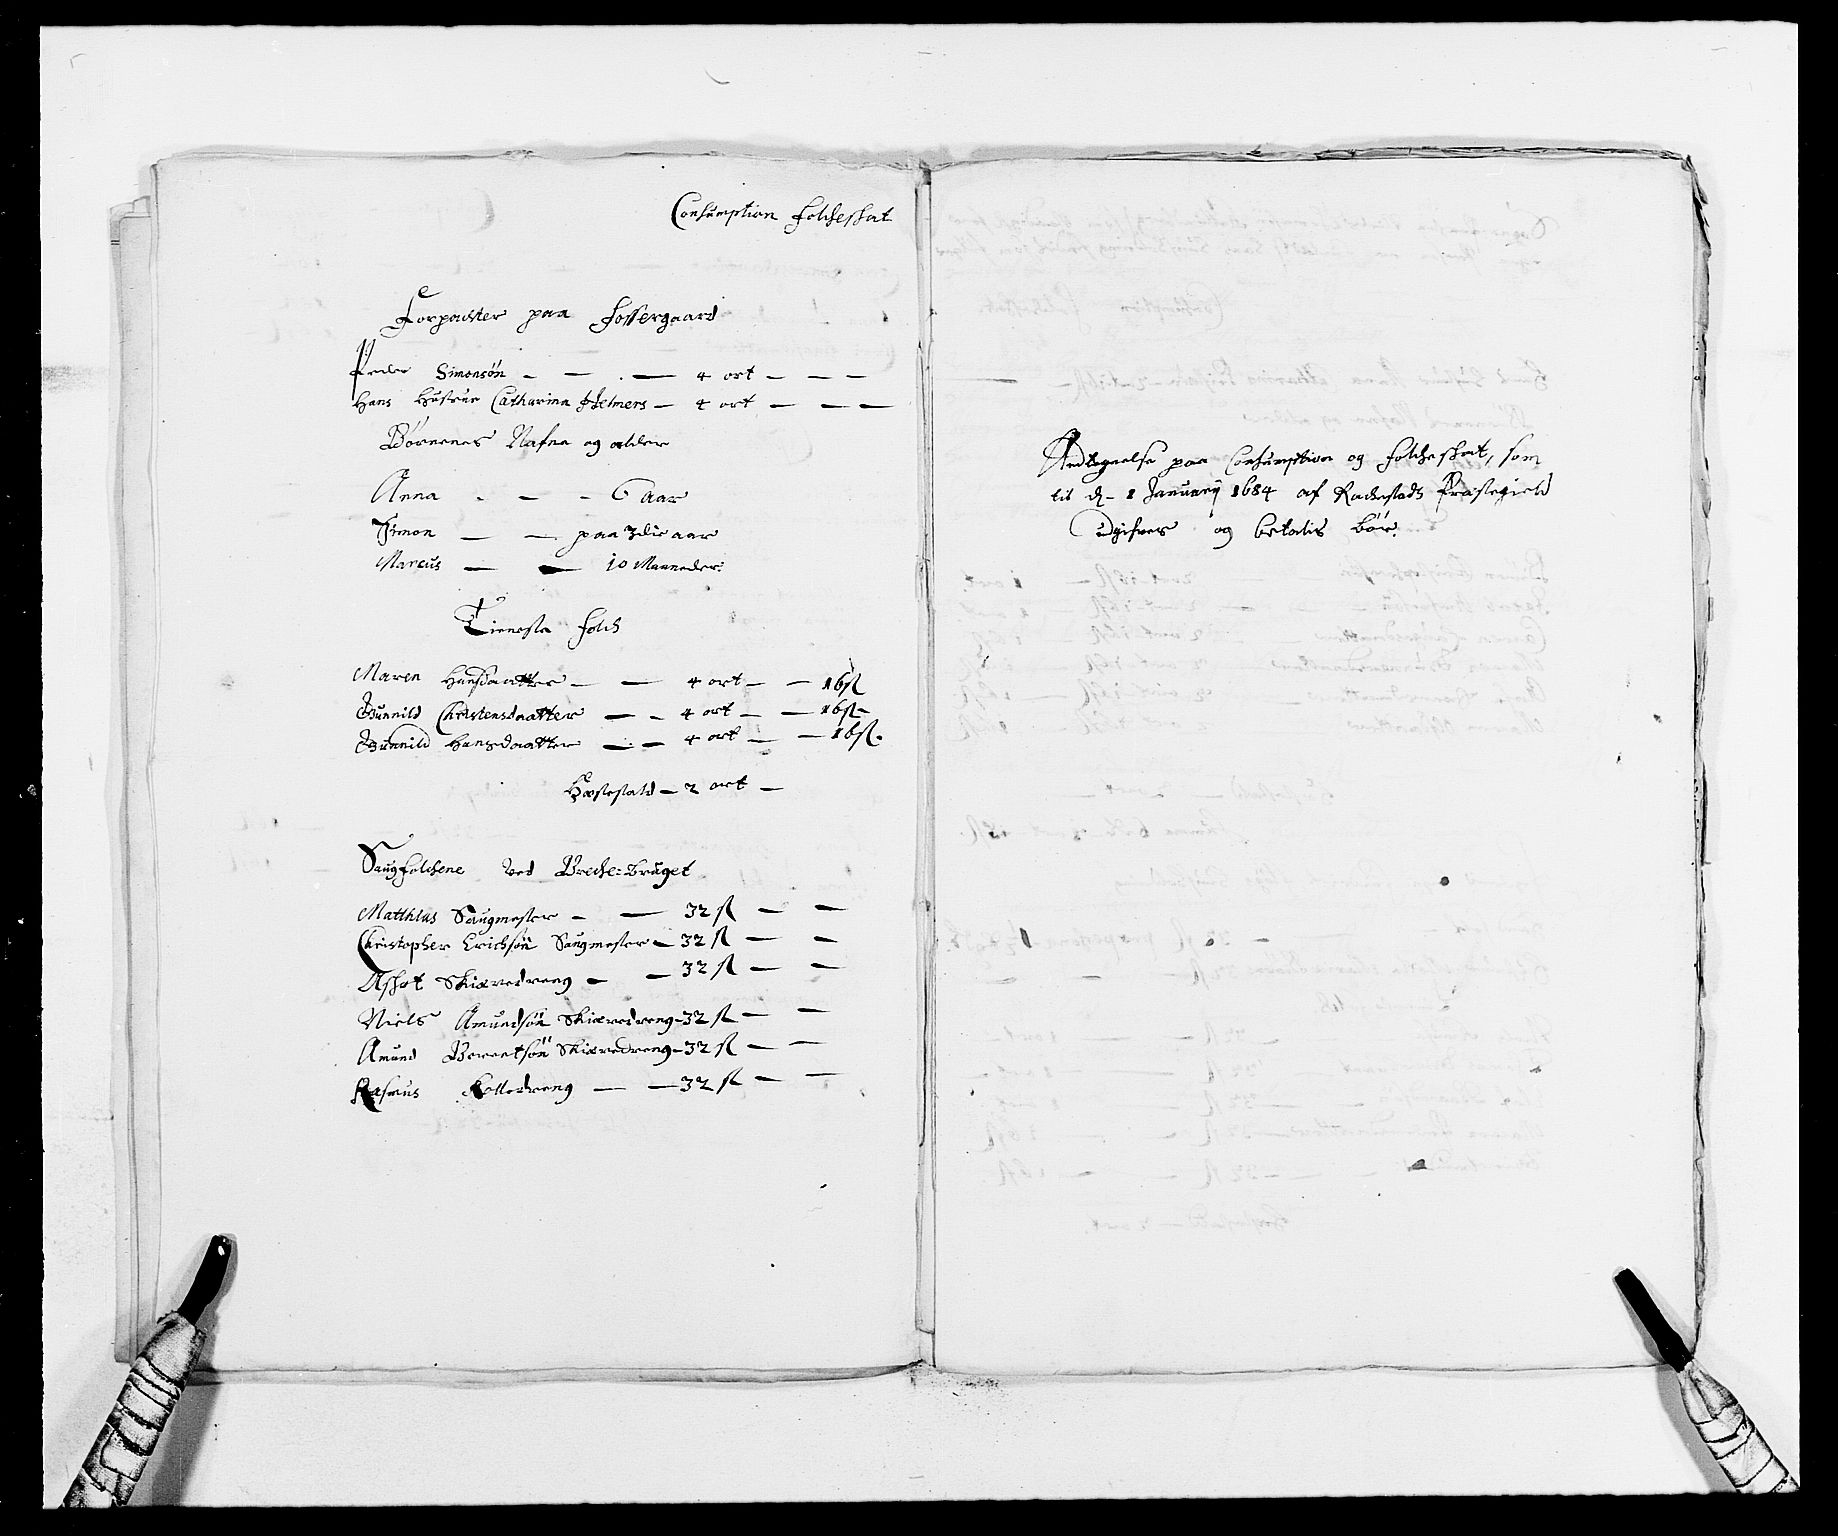 Consumption Folcheskat
Forpachter paa Fossergaard
Peder Simonsön - — . — 4 ort — — —
Hans Hustrue Catharina Helmers — 4 ort — — —
Börnenes Nafne og alder
Anna - - - 6 aar
Simon — — paa 3die aar
Marcus — — 10 Maaneder:
Tieneste Folch
Maren Hansdaatter — — 4 ort — — 16 sk
Gunnild Christensdaatter — - 4 ort — — 16 sk -
Gunnild Hansdaatter — — 4 ort — — 16 sk.
Hæstestald — 2 ort —
Saugfolchene ved Breche=Bruget
Matthias Saugmester - — 32 sk — —
Christopher Erichsön Saugmester — 32 sk — —
Aslhot Skiæredreng — — 32 sk — —
Niels Amundsön Skiæredreng - 32 sk — —
Amund Berentsön Skiæredreng - 32 sk — —
Rasmus Kolledreng — — 32 sk — —
Andtegnelse paa Consumption og Folcheskat, som
til d - 1 January 1684 af Rachestads Præstegield
udgifves og betalis bör.